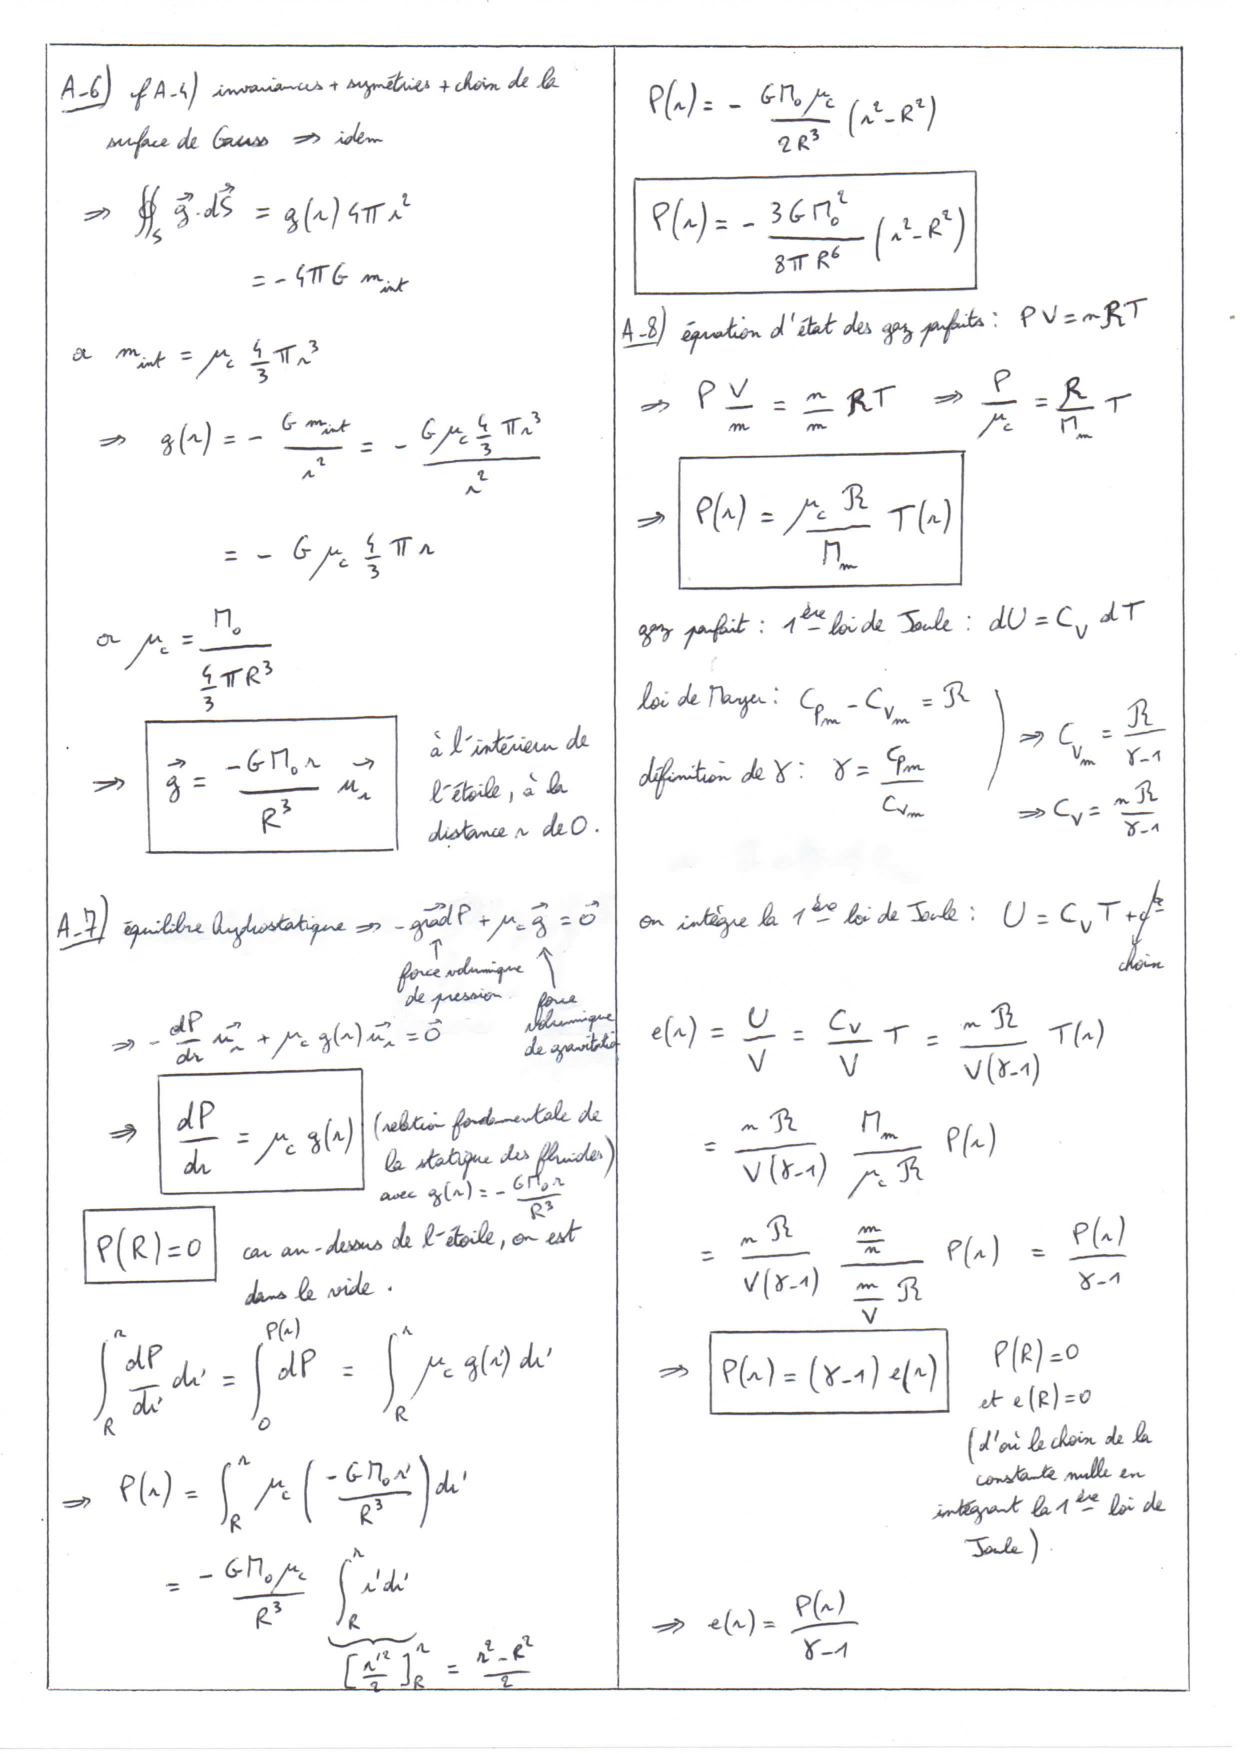 A-6) cf A-4) invariances + symétries + choix de la
surface de Gauss ⇒ idem
⇒ ∯_S g⃗·dS⃗ = g(r) 4πr²
= -4πG m_int
or m_int = μ_c 4/3 πr³
⇒ g(r) = - G m_int / r² = - G μ_c 4/3 πr³ / r²
= - G μ_c 4/3 π r
or μ_c = M₀ / (4/3 πR³)
⇒ g⃗ = -GM₀r / R³ u⃗_r
à l'intérieur de
l'étoile, à la
distance r de O.
A-7) équilibre hydrostatique ⇒ -grad⃗P + μ_c g⃗ = 0⃗
force volumique
de pression
force
volumique
de gravitation
⇒ - dP/dr u⃗_r + μ_c g(r) u⃗_r = 0⃗
⇒ dP/dr = μ_c g(r)
(relation fondamentale de
la statique des fluides)
avec g(r) = - GM₀r / R³
P(R) = 0 car au-dessus de l'étoile, on est
dans le vide.
∫_R^r dP/dr' dr' = ∫_0^P(r) dP = ∫_R^r μ_c g(r') dr'
⇒ P(r) = ∫_R^r μ_c ( -GM₀r' / R³ ) dr'
= -GM₀μ_c / R³ ∫_R^r r'dr'
[r'²/2]_R^r = (r² - R²)/2
P(r) = - GM₀μ_c / 2R³ (r² - R²)
P(r) = - 3GM₀² / 8πR⁶ (r² - R²)
A-8) équation d'état des gaz parfaits : PV = nRT
⇒ P V/m = n/m RT ⇒ P/μ_c = R/M_m T
⇒ P(r) = μ_c R / M_m T(r)
gaz parfait : 1ère loi de Joule : dU = C_V dT
loi de Mayer : C_Pm - C_Vm = R
définition de γ : γ = C_Pm / C_Vm
⇒ C_Vm = R / (γ-1)
⇒ C_V = nR / (γ-1)
on intègre la 1ère loi de Joule : U = C_V T + cte
choix
e(r) = U/V = C_V/V T = nR / V(γ-1) T(r)
= nR / V(γ-1) M_m / μ_c R P(r)
= nR / V(γ-1) (m/n) / (m/V R) P(r) = P(r) / (γ-1)
⇒ P(r) = (γ-1) e(r)
P(R) = 0
et e(R) = 0
(d'où le choix de la
constante nulle en
intégrant la 1ère loi de
Joule).
⇒ e(r) = P(r) / (γ-1)